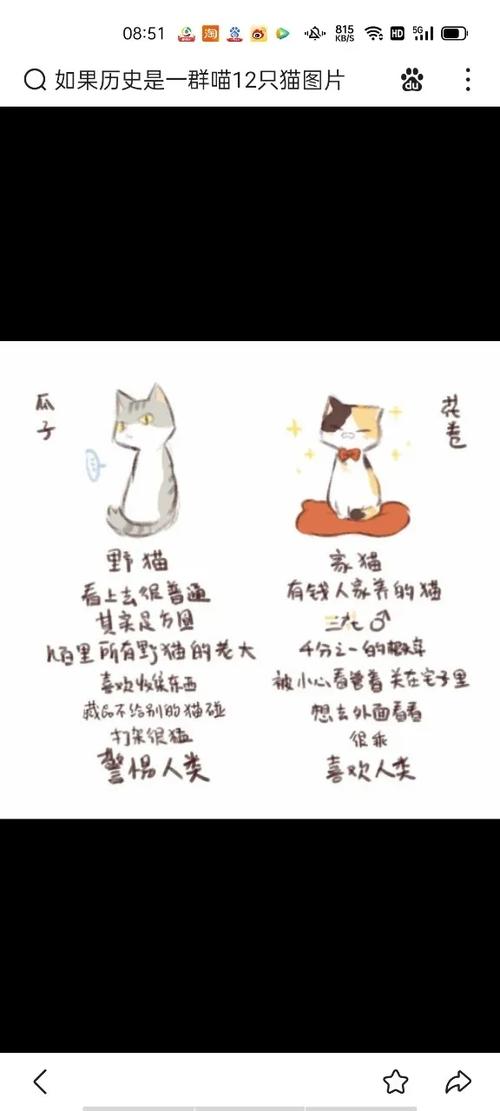 08:51
815
KB/S
HD
5G
如果历史是一群喵12只猫图片
du
瓜子
花卷
野猫
看上去很普通
其实是方圆
几百里所有野猫的老大
喜欢收集东西
藏品不给别的猫碰
打架很猛
警惕人类
家猫
有钱人家养的猫
三花♂
4分之一的概率
被小心看管着关在宅子里
想去外面看看
很乖
喜欢人类